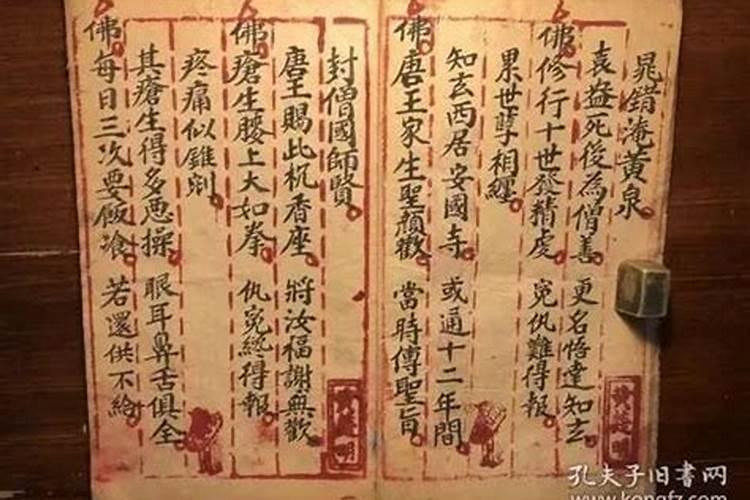 晁錯淹黃泉
袁益死後為僧善 更名悟達知玄
佛修行十世發精虔 冤仇難得報
累世孽相纏
知玄西居安國寺 或通十二年間
佛唐王家生聖顏歡 當時傳聖旨
封僧國師賢
唐王賜此杌香座 將汝福謝無歡
佛瘡生腰上大如拳 仇冤終得報
疼痛似錐剜
其瘡生得多惡操 眼耳鼻舌俱全
佛每日三次要飯飡 若還供不給
孔夫子旧書网